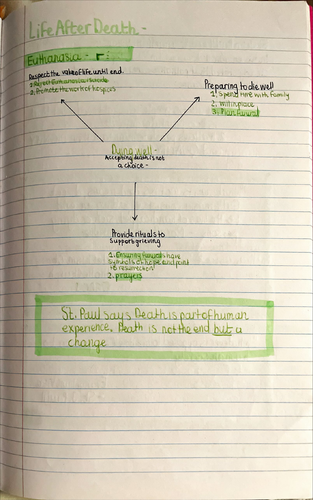 Life After Death -
Euthanasia - r:
Respect the value of life until end.
1. Reject Euthanasia + suicide
2. Promote the work of hospices
Preparing to die well
1. Spend time with family
2. Will in place
3. Plan funeral
Dying well -
Accepting death is not
a choice -
Provide rituals to
support grieving
1. Ensuring funerals have
symbols of hope and point
to resurrection
2. prayers
St. Paul says Death is part of human
experience. Death is not the end but a
change